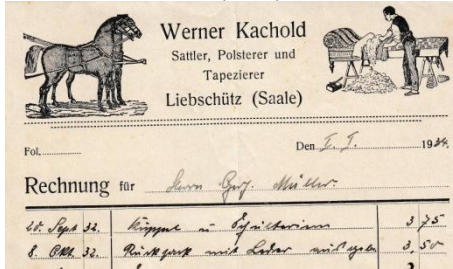 Werner Kachold
Sattler, Polsterer und
Tapezierer
Liebschütz (Saale)
Fol.
Den 1. 1. 1934.
Rechnung für Herrn Müller.
20. Sept 32. Koppel u Schulterriem 3 75
8. Okt. 32. Rucksack mit Leder 3,50